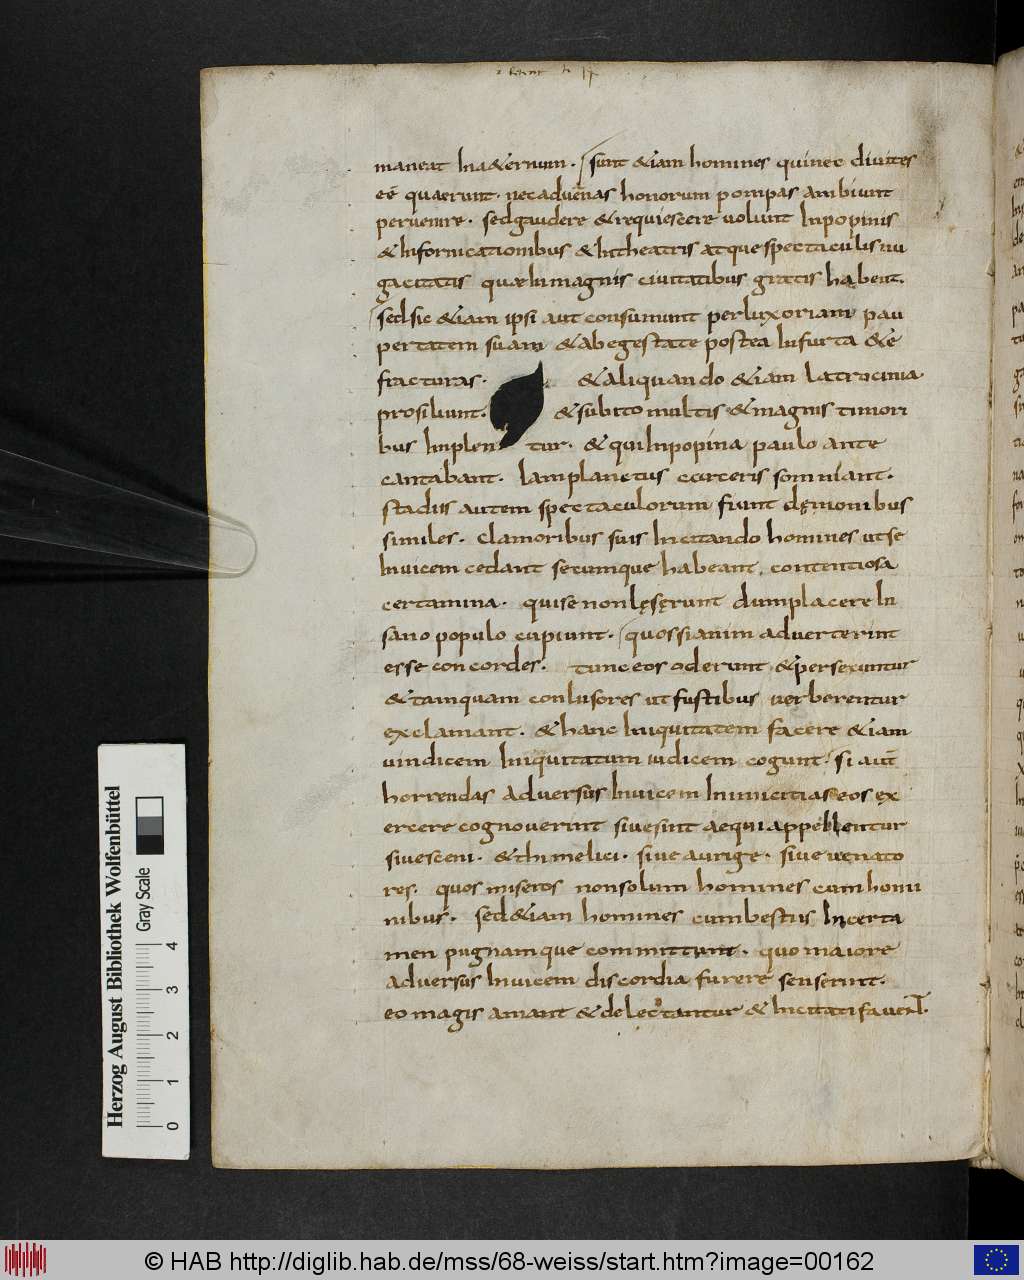 maneat In&ernum. sunt &iam homines quinec diuites
eē quaerunt. nec aduēnas honorum pompas ambiunt
peruenire. sedgaudere & requiescere uolunt Inpopinis
& Infornicationibus & Intheatris atquespectaculis nu
gacitatis quae Inmagnis ciuitatibus gratis habent.
sedsic &iam ipsi aut consumunt perluxoriam pau
pertatem suam & abegestate postea Infurta & e
fracturas. & aliquando &iam latrocinia
prosiliunt. & subito multis & magnis timori
bus Implentur. & quiInpopina paulo ante
cantabant. Iamplanctus carceris somniant.
studiis autem spectaculorum fiunt dęmonibus
similes. clamoribus suis Incitando homines utse
Inuicem cedant secumque habeant. contentiosa
certamina. quise nonlęsęrunt dumplacere In
sano populo cupiunt. quossianim aduerterint
esse concordes. tunc eos oderunt & persecuntur
& tamquam conlusores ut fustibus uerberentur
exclamant. & hanc Iniquitatem facere &iam
uindicem Iniquitatum iudicem cogunt. si aut̄
horrendas aduersus Inuicem Inimicitias eos ex
ercere cognouerint siuesint aequi appellentur
siuesceni. & thimelici. siue aurige. siue uenato
res. quos miseros nonsolum homines cumhomi
nibus. sed&iam homines cumbestiis Incerta
men pugnamque committunt. quo maiore
aduersus Inuicem discordia furere senserint.
eo magis amant & delectantur & Incitatifauent.
Herzog August Bibliothek Wolfenbüttel
Gray Scale
0 1 2 3 4
© HAB http://diglib.hab.de/mss/68-weiss/start.htm?image=00162